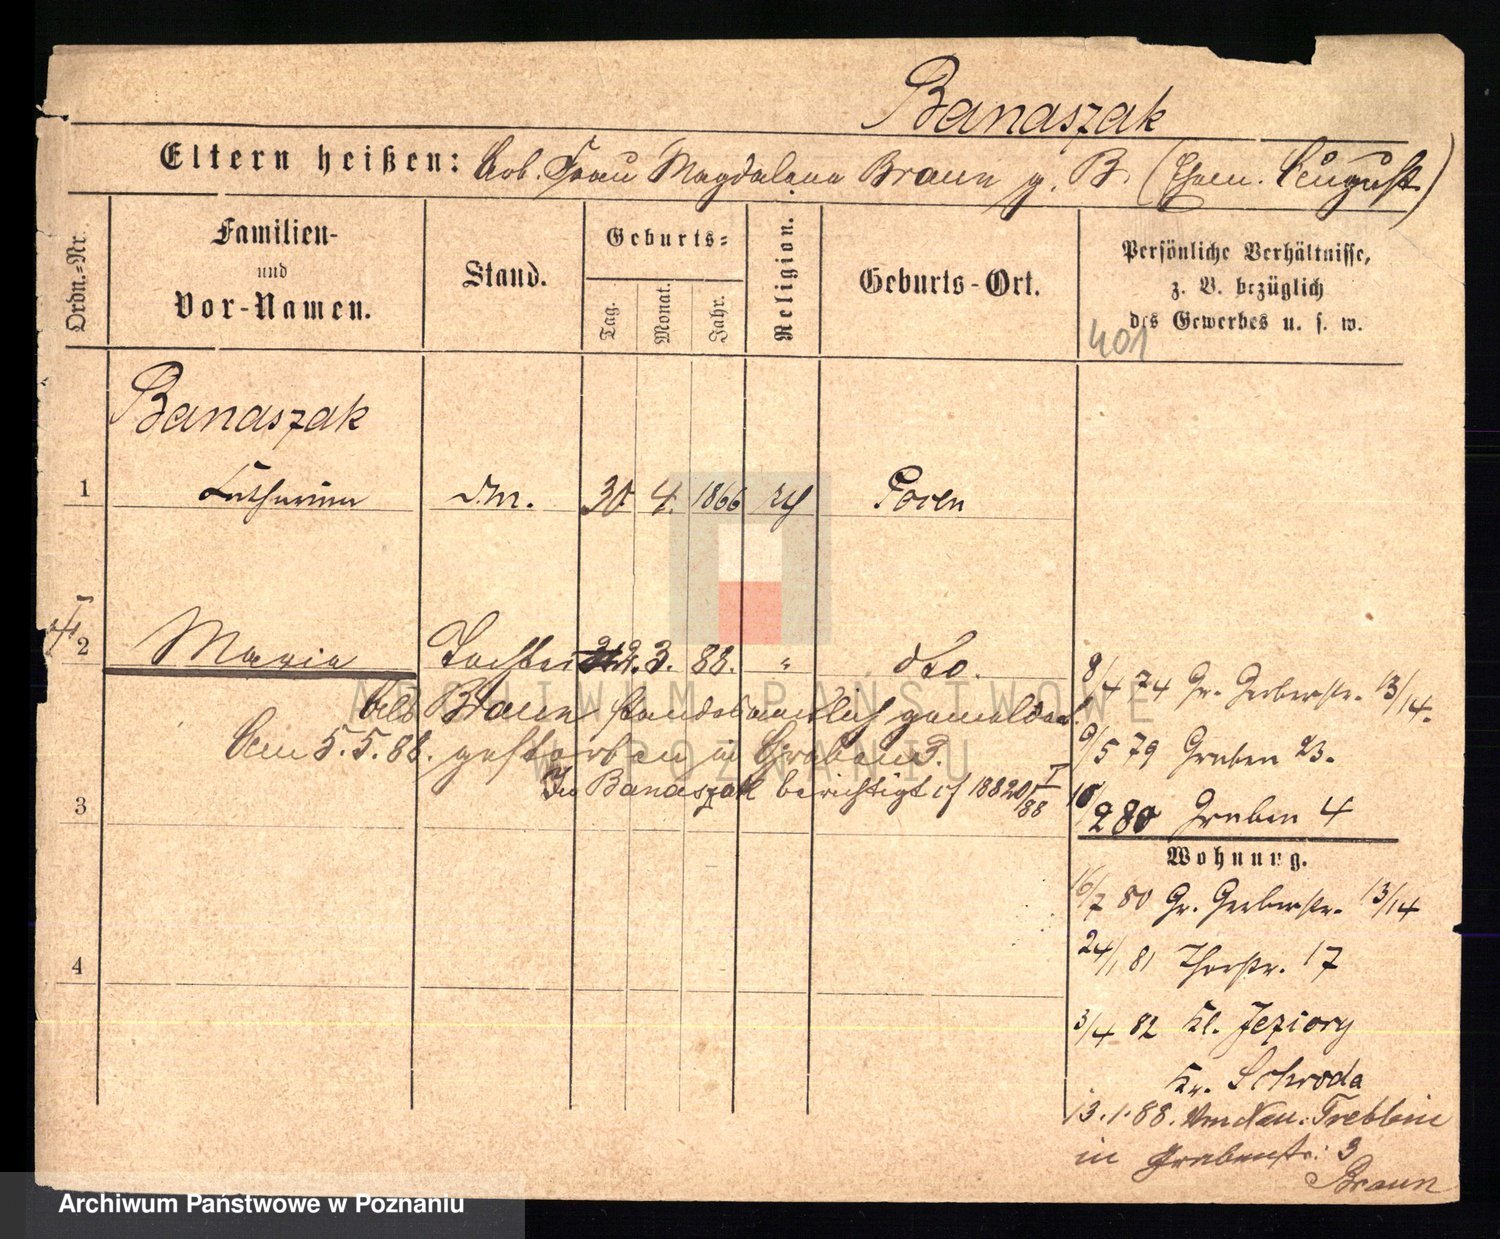 Banaszak
Eltern heißen: Arb. Frau Magdalena Braun g. B. (Ehem. August)
Ordn.=Nr.
Familien-
und
Vor-Namen.
Stand.
Geburts=
Tag.
Monat.
Jahr.
Religion.
Geburts-Ort.
Persönliche Verhältnisse,
z. B. bezüglich
des Gewerbes u. s. w.
401
Banaszak
1 Catharina d.M. 30. 4. 1866 Posen
2 Maria Tochter 3. 88. " dto.
8/4 74 Gr. Gerberstr. 13/14.
als Braun standesamtlich gemeldet.
9/5 79 Graben 23.
Am 5.5.88. gestorben in Graben 3.
In Banaszak berichtigt
3
280 Graben 4
Wohnung.
16/7 80 Gr. Gerberstr. 13/14
24/1 81 Thorstr. 17
4
3/4 82 Kl. Jeziory
Kr. Schroda
13.1.88. Treblin
in Grabenstr. 3
Braun
ARCHIWUM PAŃSTWOWE
W POZNANIU
Archiwum Państwowe w Poznaniu